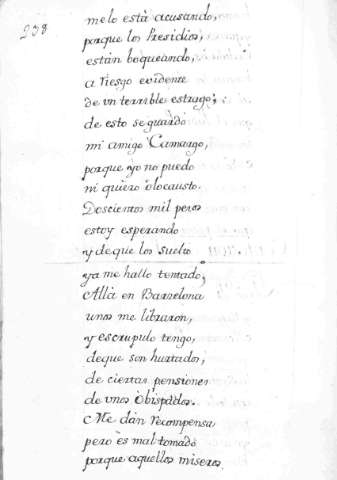 238
melo está acusando,
porque los Presidios,
están boqueando,
a riesgo evidente
de vn terrible estrago;
de esto se guardó
mi amigo Camargo,
porque yo no puedo
ni quiero olocausto.
Doscientos mil pesos
estoy esperando
y de que los suelte
ya me hallo tentado,
Allà en Barselona
unos me libraron,
y escrupulo tengo,
deque son hurtados,
de ciertas pensiones
de vnos Obispados.
Me dán recompensa
pero ès mal tomado
porque aquellos miseros